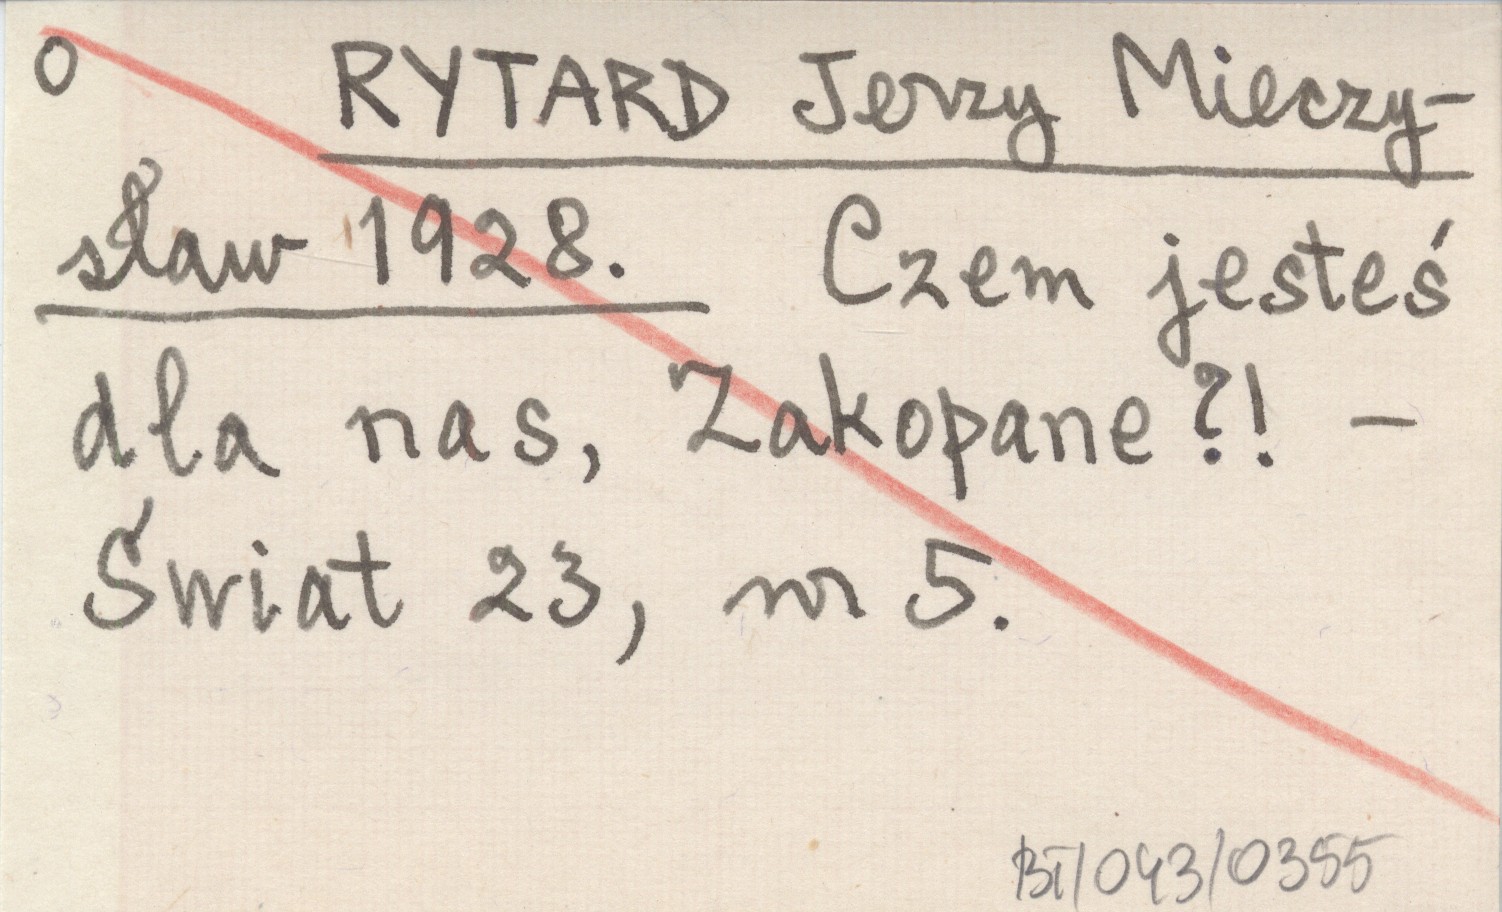 O RYTARD Jerzy Mieczy-
sław 1928. Czem jesteś
dla nas, Zakopane?! -
Świat 23, nr 5.
BT/043/0355